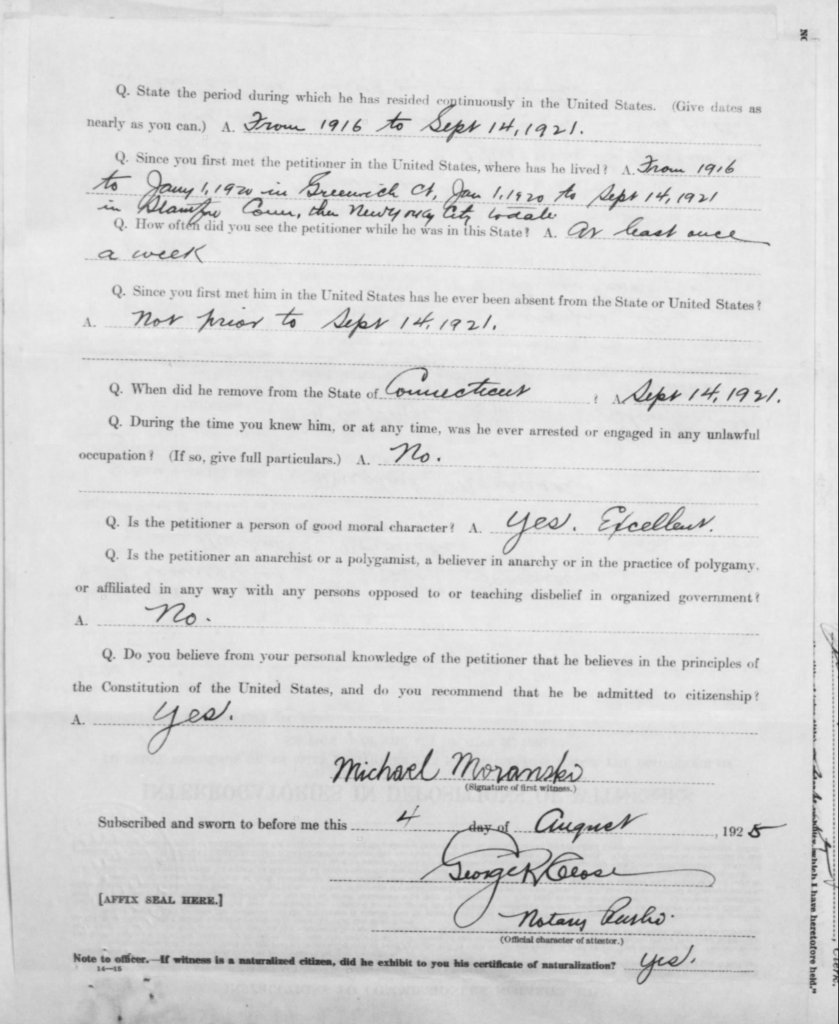 Q. State the period during which he has resided continuously in the United States. (Give dates as
nearly as you can.) A. From 1916 to Sept 14, 1921.
Q. Since you first met the petitioner in the United States, where has he lived? A. From 1916
to Jany 1, 1920 in Greenwich Ct, Jan 1, 1920 to Sept 14, 1921
in Stamford Conn, then New York City to date
Q. How often did you see the petitioner while he was in this State? A. At least once
a week
Q. Since you first met him in the United States has he ever been absent from the State or United States?
A. Not prior to Sept 14, 1921.
Q. When did he remove from the State of Connecticut ? A. Sept 14, 1921.
Q. During the time you knew him, or at any time, was he ever arrested or engaged in any unlawful
occupation? (If so, give full particulars.) A. No.
Q. Is the petitioner a person of good moral character? A. Yes. Excellent.
Q. Is the petitioner an anarchist or a polygamist, a believer in anarchy or in the practice of polygamy,
or affiliated in any way with any persons opposed to or teaching disbelief in organized government?
A. No.
Q. Do you believe from your personal knowledge of the petitioner that he believes in the principles of
the Constitution of the United States, and do you recommend that he be admitted to citizenship?
A. Yes.
Michael Moranski
(Signature of first witness.)
Subscribed and sworn to before me this 4 day of August, 1925
George R. Close
[AFFIX SEAL HERE.]
Notary Public.
(Official character of attestor.)
Note to officer.—If witness is a naturalized citizen, did he exhibit to you his certificate of naturalization? Yes.
14—15
which I have heretofore held."
Clerk.